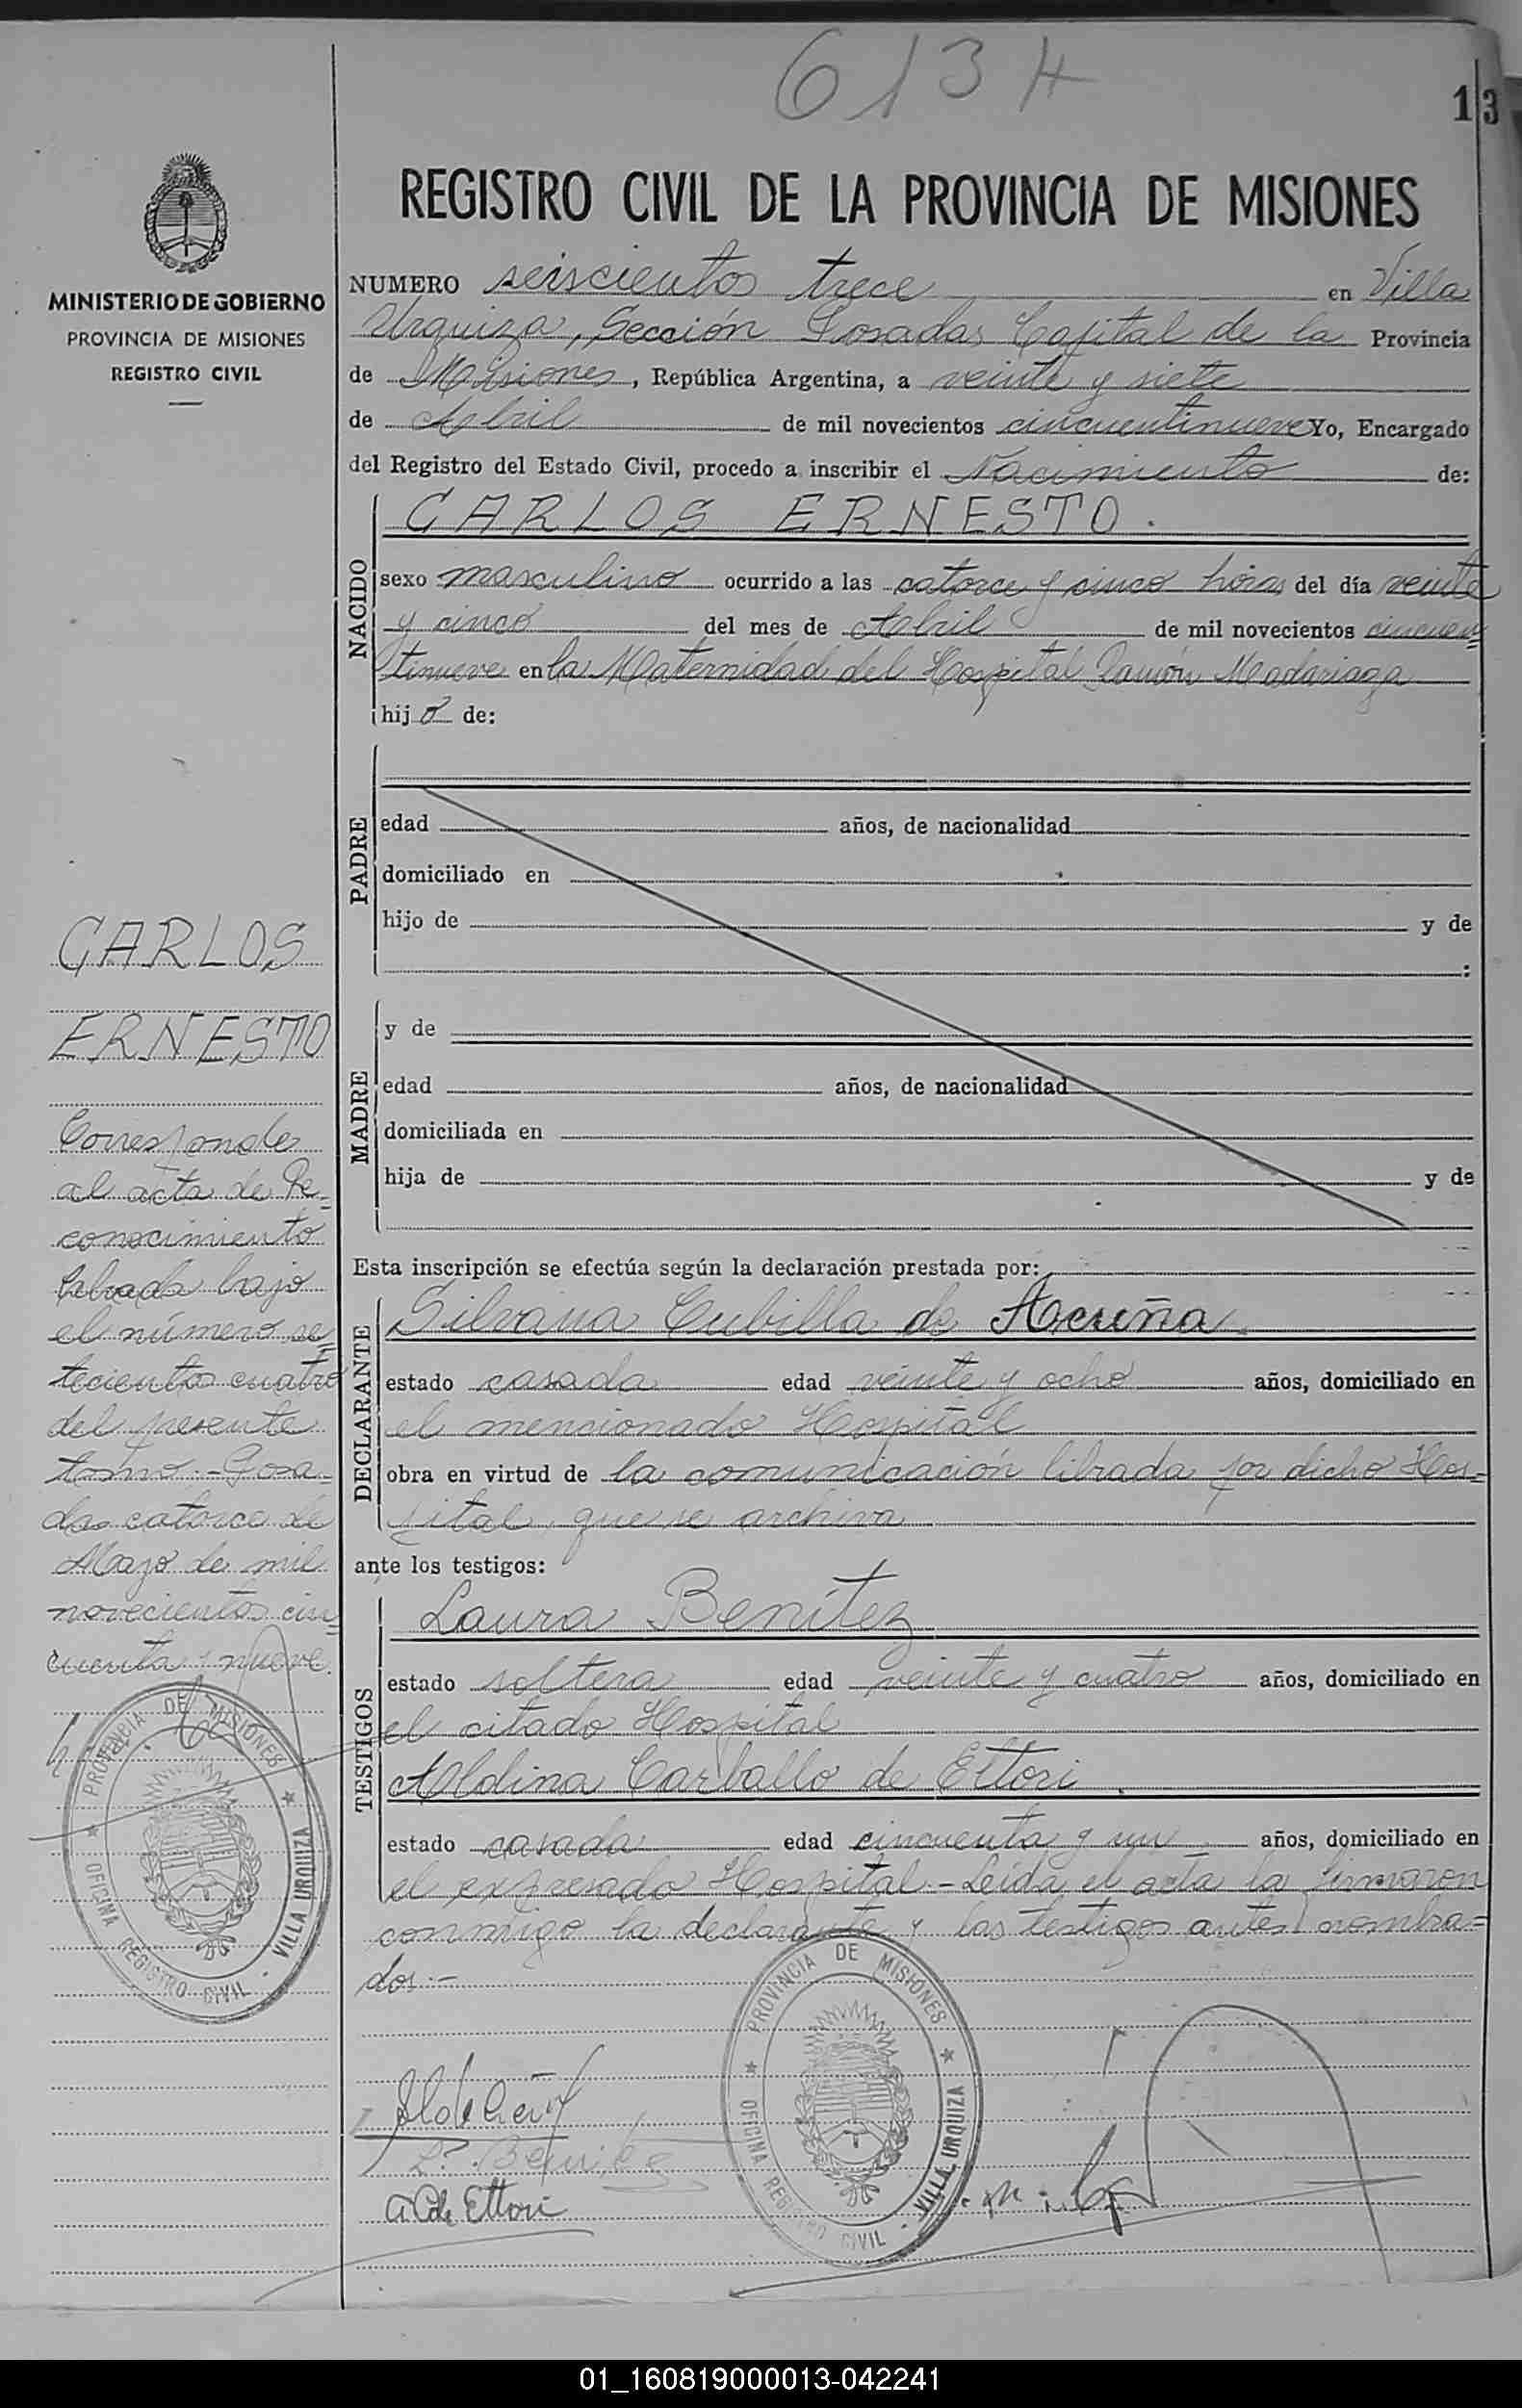 613 H
13
REGISTRO CIVIL DE LA PROVINCIA DE MISIONES
MINISTERIO DE GOBIERNO
PROVINCIA DE MISIONES
REGISTRO CIVIL
NUMERO seiscientos trece en Villa
Urquiza, Sección Posadas Capital de la Provincia
de Misiones, República Argentina, a veinte y siete
de Abril de mil novecientos cincuentinueve Yo, Encargado
del Registro del Estado Civil, procedo a inscribir el Nacimiento de:
NACIDO
CARLOS ERNESTO.
sexo masculino ocurrido a las catorce y cinco horas del día veinte
y cinco del mes de Abril de mil novecientos cincuen=
tinueve en la Maternidad del Hospital Ramón Madariaga
hijo de:
PADRE
edad años, de nacionalidad
domiciliado en
hijo de y de
:
MADRE
y de
edad años, de nacionalidad
domiciliada en
hija de y de
Esta inscripción se efectúa según la declaración prestada por:
DECLARANTE
Silvana Cubilla de Acuña
estado casada edad veinte y ocho años, domiciliado en
el mencionado Hospital
obra en virtud de la comunicación librada por dicho Hos=
pital, que se archiva
ante los testigos:
TESTIGOS
Laura Benítez
estado soltera edad veinte y cuatro años, domiciliado en
el citado Hospital
Aldina Carballo de Ettori.
estado casada edad cincuenta y un años, domiciliado en
el expresado Hospital.- Leída el acta la firmaron
conmigo la declarante y los testigos antes nombra=
dos.-
CARLOS
ERNESTO
Corresponde
al acta de Re=
conocimiento
labrada bajo
el número se=
tecientos cuatro
del presente
tomo.- Posa=
das catorce de
Mayo de mil
novecientos cin=
cuenta y nueve.
PROVINCIA DE MISIONES
OFICINA REGISTRO CIVIL - VILLA URQUIZA
PROVINCIA DE MISIONES
OFICINA REGISTRO CIVIL - VILLA URQUIZA
L. Benitez
A C de Ettori
01_160819000013-042241